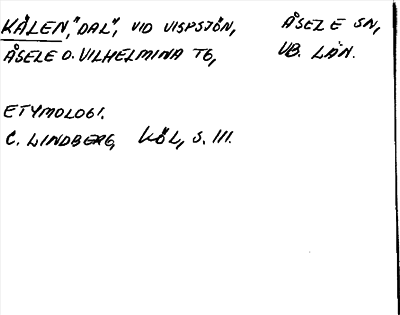 KÅLEN, "DAL", VID VISPSJÖN, ÅSELE SN,
ÅSELE O. VILHELMINA TG, VB. LÄN.
ETYMOLOGI.
C. LINDBERG, KÖL, S. 111.